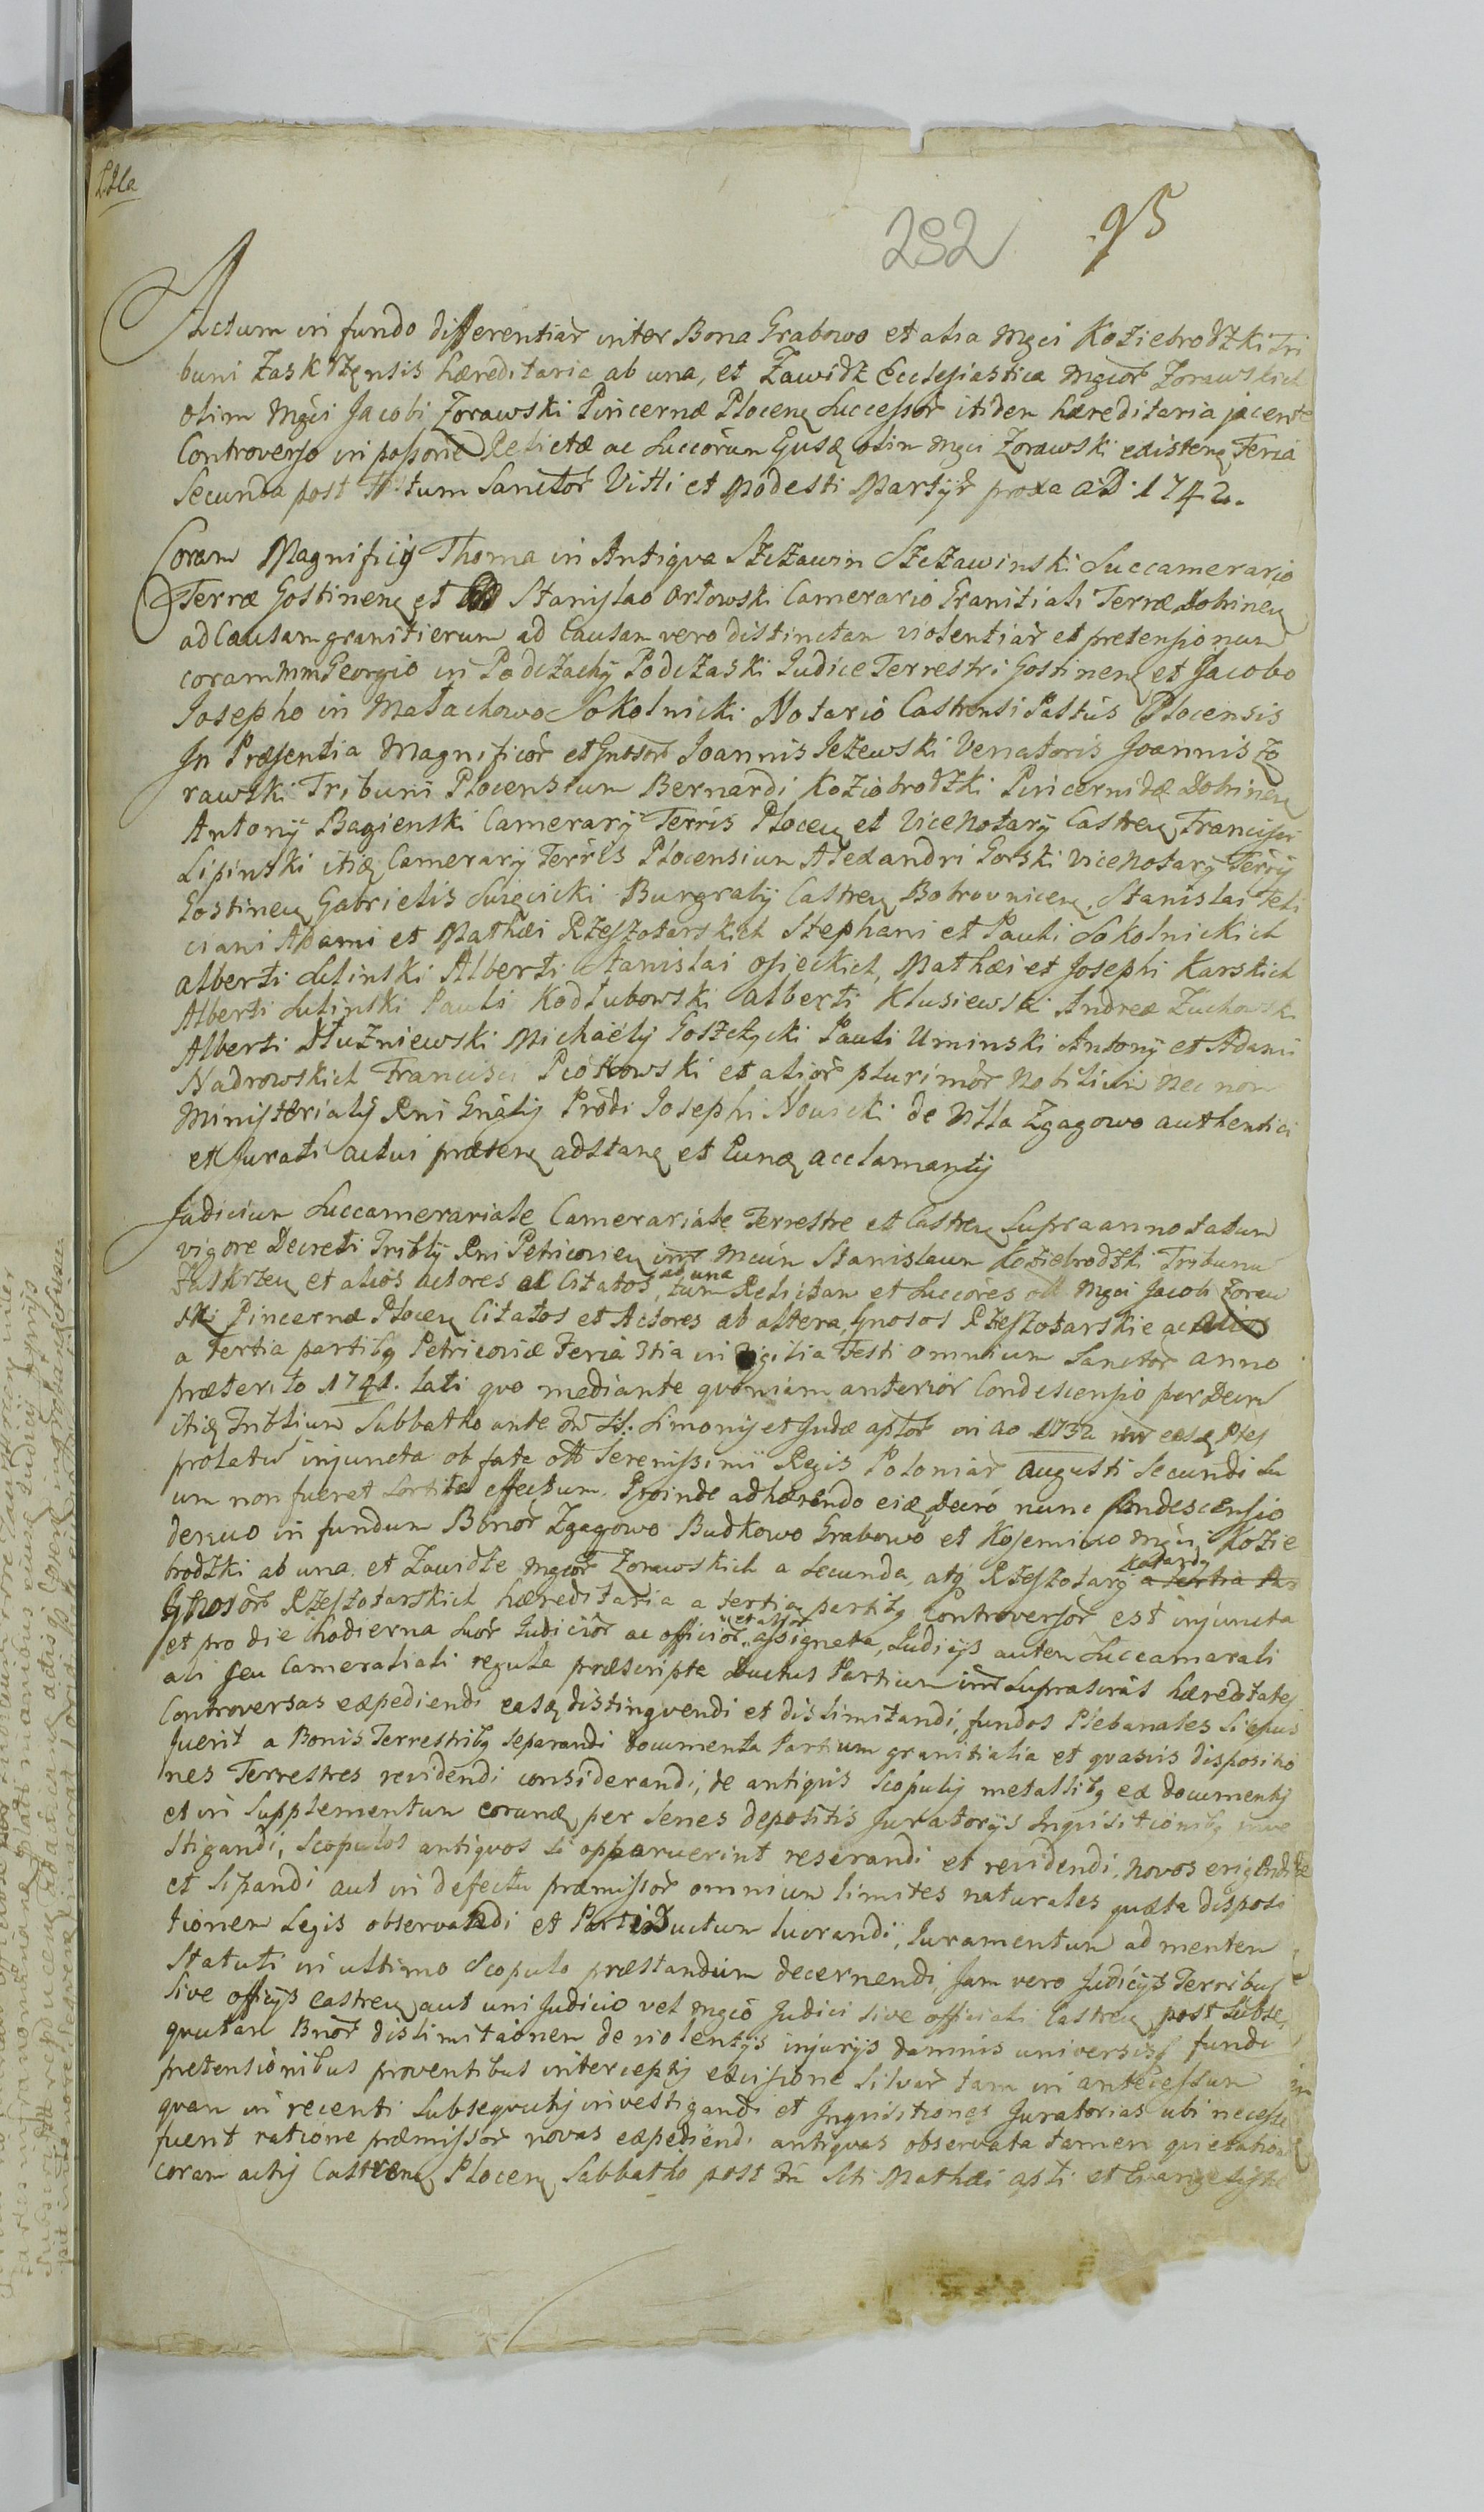 292 95
Actum in fundo differentiar inter Bona Grabowo et alia Mgci Koziebrodzki Tri
buni Zaskrzensis hæreditaria ab una, et Zawidz Ecclesiastica Mgcor Zorawskich
olim Mgci Jacobi Zorawski Pincernæ Plocen Successor itidem hæreditaria jacente
Controverso in possone Relictæ ac Succorum Ejusq olim Mgci Zorawski existen Feria
Secunda post Ftum Sanctor Vitti et Modesti Martyr proxa AD. 1742.
Coram Magnificis Thoma in Antiqva Szczawin Szczawinski Succamerario
Terræ Gostinen et Stanislao Orlowski Camerario Granitiali Terræ Dobrinen
ad Causam granitierum ad Causam vero distinctam violentiar et pretensionum
coram Mm Georgio in Podczachy Podczaski Judice Terrestri Gostinen et Jacobo
Josepho in Małachowo Sokolnicki Notario Castrensi Paltus Plocensis
In Præsentia Magnificor et Gnosor Joannis Jeżewski Venatoris Joannis Zo
rawski Tribuni Plocensium Bernardi Koziobrodzki Pincernidæ Dobrinen
Antony Bagienski Camerary Terris Plocen et Vicenotary Castren Francisci
Lipinski itiq Camerary Terris Plocensium Alexandri Gorski Vicenotary Terrij
Gostinen Gabrielis Swięcicki Burgraby Castren Bobrovnicen Stanislai Feli
ciani Adami et Mathæi Rzeszotarskich Stephani et Pauli Sokolnickich
Alberti Lulinski Alberti Stanislai Osieckich Mathæi et Josephi Karskich
Alberti Lulinski Pauli Kodłubowski Alberti Klusiewski Andreæ Zuchowski
Alberti Dłużniewski Michaelis Goszczycki Pauli Uminski Antony et Adami
Nadrowskich Francisci Piotrowski et alior plurimor Nobilium nec non
Ministerialis Rni Gnalis Prodi Josephi Nowicki de Villa Zgagowo authentici
et Jurati actui præsen adstan et Eunq acclamantis
Judicium Succamerariale Camerariale Terrestre et Castren Supra annotatum
vigore Decreti Triblis Rni Petricovien inr Mcum Stanislaum Koziebrodzki Tribunu
Zaskrzen et alios actores ac Citatos ab una tum Relictam et Succores olt Mgci Jacobi Zoraw
ski Pincernæ Plocen Citatos et Actores ab altera, Gnosos Rzeszotarskie ac alios
a tertia partibq Petricoviæ Feria 3tia in Vigilia Festi Omnium Sanctor anno
præterito 1741. lati qvo mediante qvoniam anterior Condescensio per Decm
itiq Triblium Sabbatho ante Fm SS. Simonis et Judæ aptor in ao 1732 inr easq Ptes
prolatu injuncta ob fata olt Serenissimi Regis Poloniar Augusti Secundi Su
um non fuerat Sortita effectum. Proinde adhærendo eiq Decro nunc Condescensio
denuo in fundum Bonor Zgagowo Budkowo Grabowo et Kosemino Mgci Kozie
brodzki ab una et Zawidze Mgcor Zorawskich a Secunda, atq Rzeszotary Katardy a tertia Par
Gnosor Rzeszotarskich hæreditaria a tertia partibq Controversor est injuncta
et pro die hodierna Suor Judicior ac officior et alior assignata, Judicijs autem Succamarali
ali Seu Cameraliali regula præscripta Ductus Partium inr Suprascras hæreditates
Controversas expediendi easq distingvendi et dislimitandi, fundos Plebanales Si opus
fuerit a Bonis Terrestribq Separandi Documenta Partium granitialia et qvasvis dispositio
nes Terrestres revidendi considerandi, de antiquis Scopulis metallibq ex documentis
et in Supplementum eorunq per Senes depositis Juratorijs Inqvisitionibq inve
stigandi, Scopulos antiqvos Si apparuerint reserandi et revidendi, novos erigendi
et Sipandi aut in defectu præmissor omnium limites naturales juxta disposi
tionem Legis observandi et Parti Ductum lucrandi, Juramentum ad mentem
Statuti in ultimo Scopulo præstandum decernendi, Jam vero Judicijs Terribus
Sive officijs castren aut uni Judicio vel Mgco Judici Sive officiali Castren post Subse
qvutam Bnor dislimitaonem de violentijs injurijs damnis universisq fundi
pretensionibus proventibus interceptis excisione Silvar tam in antecessum
qvam in recenti Subseqvutis investigandi et Inqvisitiones Juratorias ubi necesse
fuerit ratione præmissor novas expediendi antiqvas observata tamen quietatione
coram actis Castren Plocen Sabbatho post Fm Scti Mathæi apti et Evangelistæ